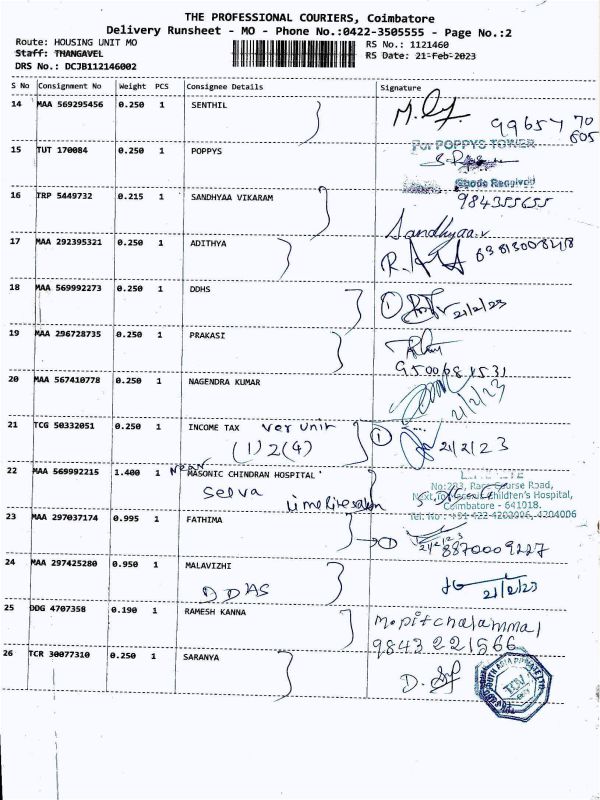 THE PROFESSIONAL COURIERS, Coimbatore
Delivery Runsheet - MO - Phone No.:0422-3505555 - Page No.:2
Route: HOUSING UNIT MO RS No.: 1121460
Staff: THANGAVEL RS Date: 21-Feb-2023
DRS No.: DCJB112146002
S No Consignment No Weight PCS Consignee Details Signature
14 MAA 569295456 0.250 1 SENTHIL
99657 70
605
15 TUT 170084 0.250 1 POPPYS For POPPYS TOWER
Goods Received
16 TRP 5449732 0.215 1 SANDHYAA VIKARAM 984355655
Sandhyaa.v
17 MAA 292395321 0.250 1 ADITHYA
18 MAA 569992273 0.250 1 DDHS 1 21/2/23
19 MAA 296728735 0.250 1 PRAKASI
20 MAA 567410778 0.250 1 NAGENDRA KUMAR
21/2/23
21 TCG 50332051 0.250 1 INCOME TAX ver unit 1 21/2/23
(1) 2(4)
22 MAA 569992215 1.400 1 near MASONIC CHINDRAN HOSPITAL
No:203, Race Course Road,
Selva Next to Masonic Children's Hospital,
Coimbatore - 641018.
23 MAA 297037174 0.995 1 FATHIMA
1 21/2/23
8870009227
24 MAA 297425280 0.950 1 MALAVIZHI
21/2/23
25 DDG 4707358 0.190 1 RAMESH KANNA M.pitchalammal
9843 221566
26 TCR 30077310 0.250 1 SARANYA